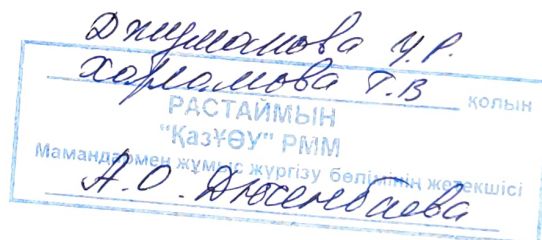 Джуманова У.Р.
Харламова Т.В қолын
РАСТАЙМЫН
"ҚазҰӨУ" РММ
Мамандармен жұмыс жүргізу бөлімінің жетекшісі
А.О. Дюсенбаева